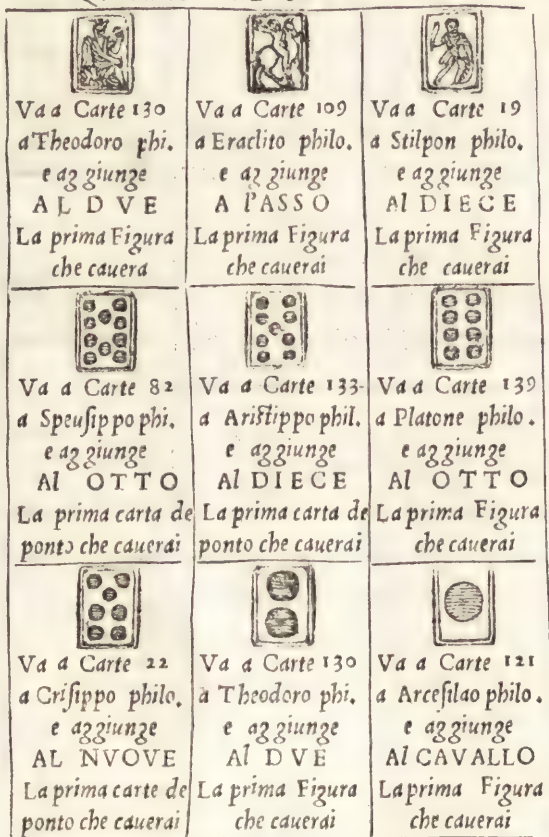 Va a Carte 130
a Theodoro phi.
e aggiunge
AL DVE
La prima Figura
che cauera
Va a Carte 109
a Eraclito philo.
e aggiunge
A l'ASSO
La prima Figura
che cauerai
Va a Carte 19
a Stilpon philo.
e aggiunge
Al DIECE
La prima Figura
che cauerai
Va a Carte 82
a Speuſippo phi.
e aggiunge
Al OTTO
La prima carta de
ponto che cauerai
Va a Carte 133
a Ariſtippo phil.
e aggiunge
Al DIECE
La prima carta de
ponto che cauerai
Va a Carte 139
a Platone philo.
e aggiunge
Al OTTO
La prima Figura
che cauerai
Va a Carte 22
a Criſippo philo.
e aggiunge
AL NVOVE
La prima carte de
ponto che cauerai
Va a Carte 130
a Theodoro phi.
e aggiunge
Al DVE
La prima Figura
che cauerai
Va a Carte 121
a Arceſilao philo.
e aggiunge
Al CAVALLO
La prima Figura
che cauerai